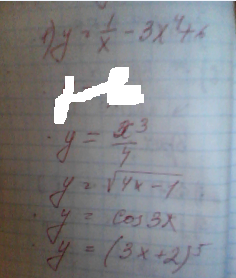 1) y = 1/x - 3x⁴ +
y = x³/4
y = √(4x-1)
y = cos3x
y = (3x+2)⁵